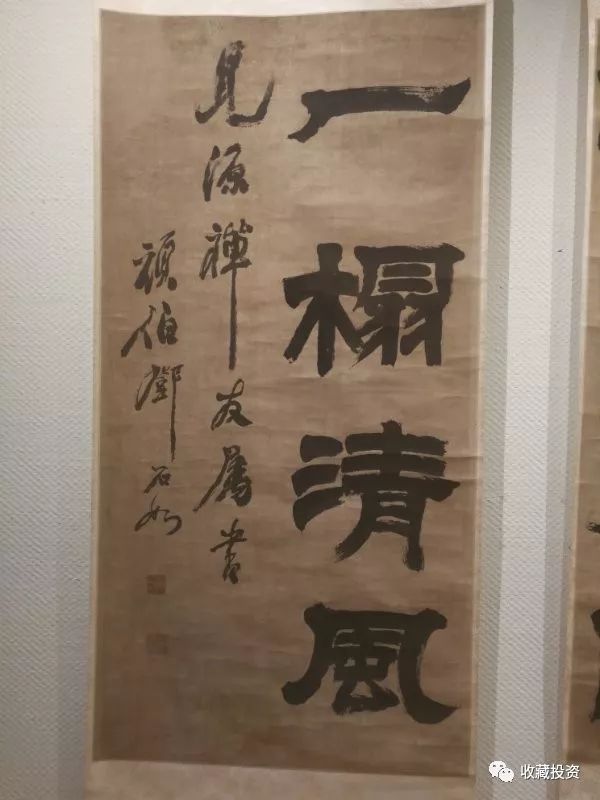 一榻清風
見源禅友属書
頑伯鄧石如
收藏投资